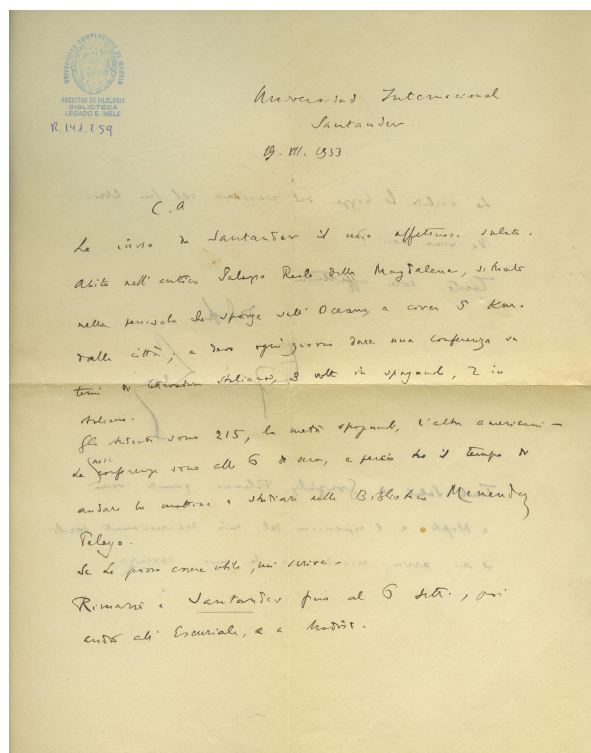 UNIVERSIDAD COMPLUTENSE DE MADRID
FACULTAD DE FILOLOGIA
BIBLIOTECA
LEGADO E. MELE
R 148.259
Universidad Internacional
Santander
19. VIII. 1933
C. A
Le invio da Santander il mio affettuoso saluto.
Abito nell'antico Palazzo Reale della Magdalena, situato
nella penisola che sporge sull'Oceano, a circa 5 Km.
dalla città, e devo ogni giorno dare una conferenza su
temi di letteratura italiana, 3 volte in spagnuolo, 2 in
italiano.
Gli studenti sono 215, la metà spagnuoli, l'altra americani -
Le mie conferenze sono alle 6 di sera, e perciò ho il tempo di
andare la mattina a studiare nella Biblioteca Menendez
Pelayo.
Se Le posso essere utile, mi scriva -
Rimarrò a Santander fino al 6 sett., poi
andrò all'Escuriale, e a Madrid.